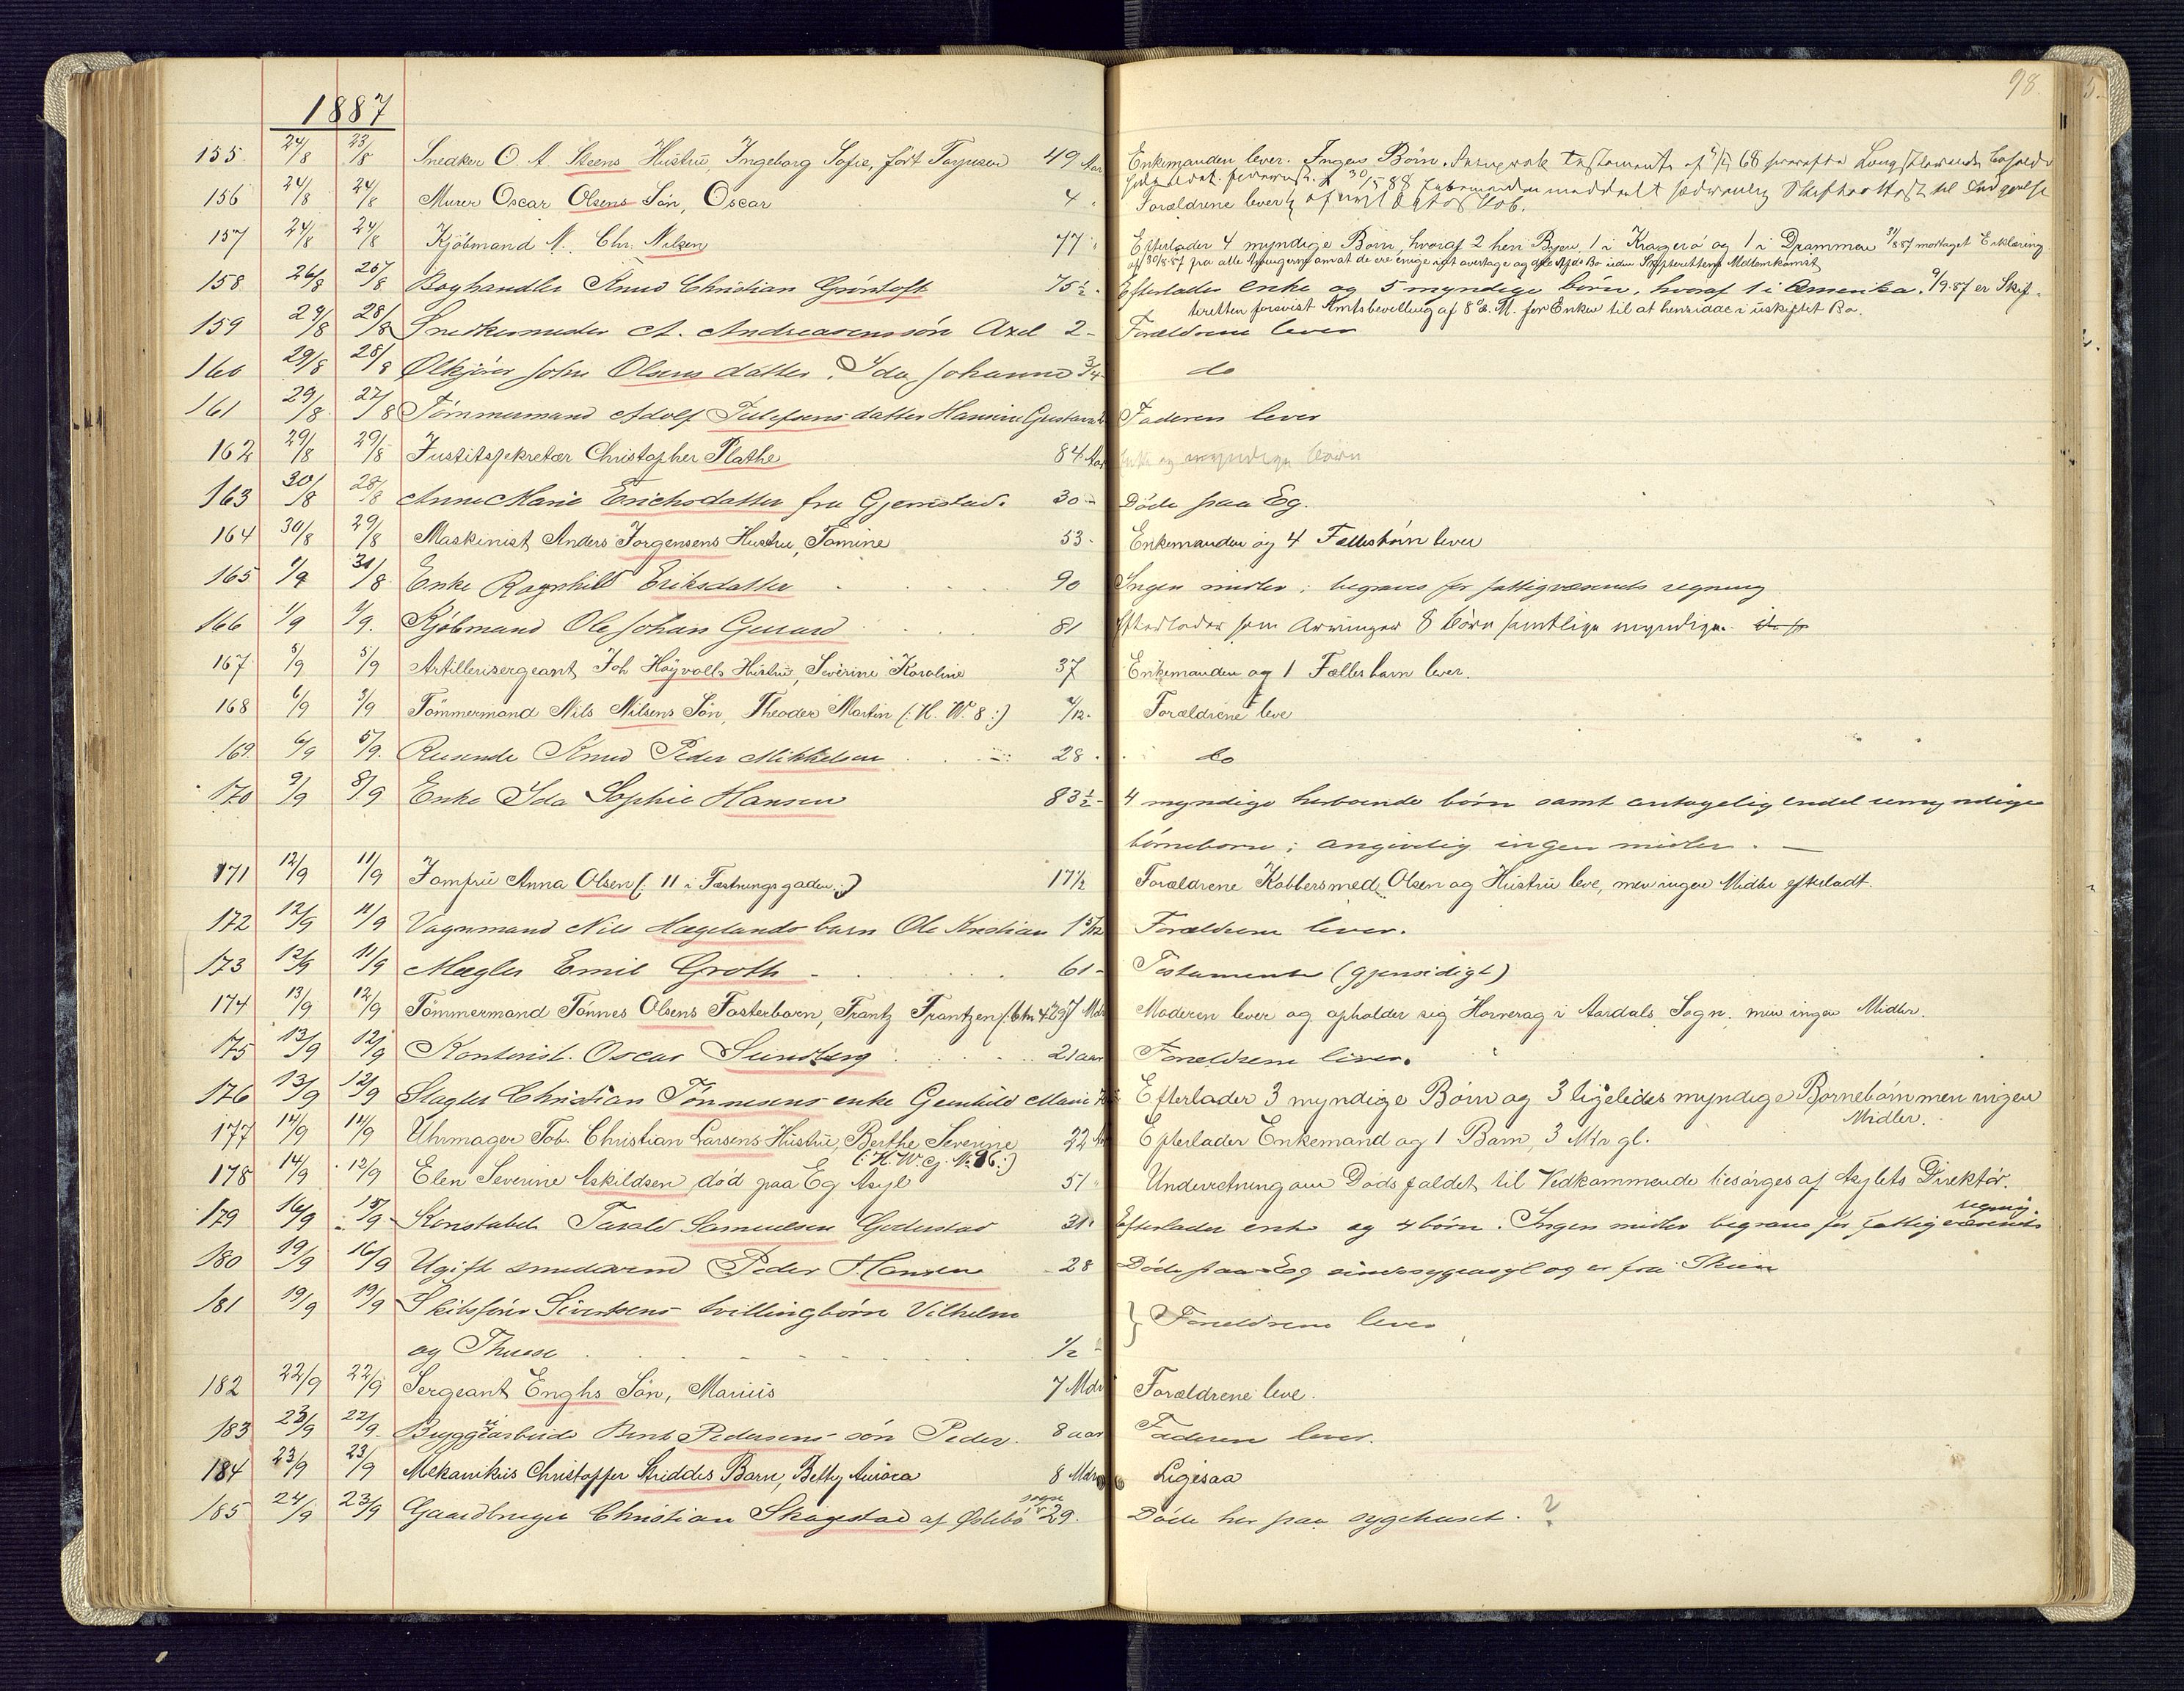 98.
1887
155 24/8 23/8 Snedker O A Steens Hustru, Ingeborg Sofie, født 49 Aar Enkemanden lever. Ingen Børn.
156 24/8 24/8 Murer Oscar Olsens Søn, Oscar 4 " Forældrene lever
157 24/8 24/8 Kjøbmand N. Chr. Nilsen 77 " Efterlader 4 myndige Børn, hvoraf 2 her i Byen, 1 i Kragerø og 1 i Drammen 31/8 87 modtaget Erklæring
af 30/8 87 fra alle Arvingerne om at de ere enige i at overtage og dele Afdødes Bo uden Skifterettens Mellemkomst
158 26/8 25/8 Boghandler Knud Christian Grøntoft 75½ - Efterlader enke og 5 myndige børn, hvoraf 1 i Amerika. 9/9 87 er Skif-
teretten forevist Amtsbevilling af 8 d. M. for Enken til at hensidde i uskiftet Bo.
159 29/8 28/8 Snedkermester A. Andreasens søn Axel 2 - Forældrene lever
160 29/8 28/8 Ølkjører John Olsens datter, Ida Johanne 3/4 - do
161 29/8 27/8 Tømmermand Adolf Tellefsens datter Hansine Gustava Faderen lever
162 29/8 29/8 Justitssekretær Christopher Plathe 84 Aar Enke og myndige børn
163 30/8 28/8 Anne Marie Erichsdatter fra Gjerrestad. 30 - Døde paa Eg.
164 30/8 29/8 Maskinist Anders Jorgensens Hustru, Tomine 53 - Enkemanden og 4 Fællesbørn lever
165 1/9 31/8 Enke Ragnhild Eriksdatter 90 Ingen midler; begraves for fattigvæsenets regning
166 1/9 1/9. Kjøbmand Ole Johan Gerrard 81 Efterlader som Arvinger 8 børn samtlige myndige.
167 5/9 5/9 Artillerisergeant Joh Høyvolls Hustru, Severine Karoline 37 Enkemanden og 1 Fællesbarn lever.
168 6/9 5/9 Tømmermand Nils Nilsens Søn, Theodor Martin (: H. W. 8 :) Forældrene leve
169. 6/9 5/9. Reisende Knud Peder Mikkelsen 28 - do
170 9/9 8/9 Enke Ida Sophie Hansen 83½ - 4 myndige herboende børn samt antagelig endel umyndige
børnebørn; angivelig ingen midler. —
171 12/9 11/9 Jomfru Anna Olsen (: 11 i Fæstningsgaden :) 17½ Forældrene Kobbersmed Olsen og Hustru leve, men ingen Midler efterladt.
172 12/9 11/9 Vognmand Nils Hægelands barn Ole Kristian 1 5/12 Forældrene lever.
173 12/9 11/9 Mægler Emil Groth 61 - Testamente (gjensidigt)
174 13/9 12/9 Tømmermand Tønnes Olsens Fosterbarn, Frantz Frantzen 7 Mdr Moderen lever og opholder sig i Aardals Sogn, men ingen Midler.
175 13/9 12/9 Kontorist. Oscar Sundberg 21 aar Forældrene lever.
176 13/9 12/9 Slagter Christian Tønnesens enke Gunhild Marie Efterlader 3 myndige Børn og 3 ligeledes myndige Børnebørn men ingen
Midler.
177 14/9 14/9 Uhrmager Tob. Christian Larsens Hustru, Berthe Severine 22 Aar Efterlader Enkemand og 1 Barn, 3 Mdr gl.
(: H. W. G. N. 26 :)
178 14/9 12/9 Elen Severine Askildsen død paa Eg Asyl 51 " Underretning om Dødsfaldet til Vedkommende besørges af Asylets Direktør.
179 16/9 15/9 Konstabel Tarald Samuelsen Gjederstad 31 " Efterlader enke og 4 børn. Ingen midler begraves for fattigvæsenets
regning.
180 19/9 16/9 Ugift smedsvend Peder Hansen 28 Døde paa Eg sindssygeasyl og er fra Skien
181 19/9 19/9 Skibsfører Sivertsens tvillingbørn Vilhelm
og Thrine 1/2 " } Forældrene lever
182 22/9 22/9 Sergeant Enghs Søn, Marius 7 Mdr Forældrene leve.
183 23/9 22/9. Bryggearbeider Bent Pedersens søn Peder. 8 aar Faderen lever.
184 23/9 23/9 Mekanikus Christoffer Ariddes Barn, Betty Aurora 8 Mdr Ligesaa
185 24/9 23/9 Gaardbruger Christian Skogstad af Øslebø sogn 29. Døde her paa sygehuset. ?